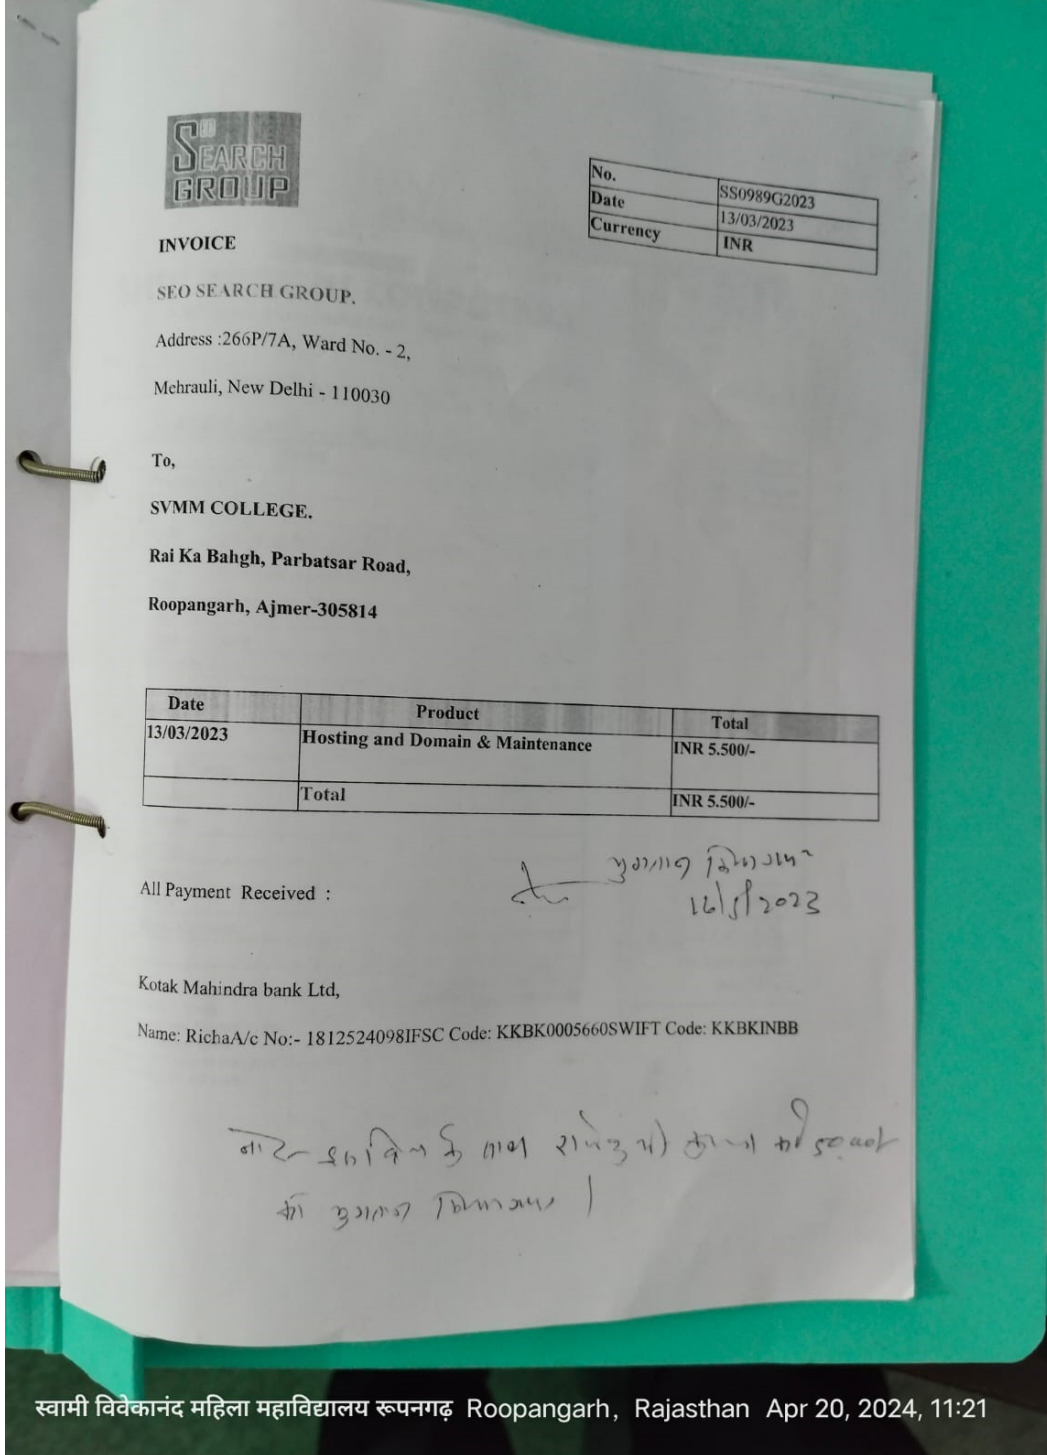 SEO
SEARCH
GROUP
No. SS0989G2023
Date 13/03/2023
Currency INR
INVOICE
SEO SEARCH GROUP.
Address :266P/7A, Ward No. - 2,
Mehrauli, New Delhi - 110030
To,
SVMM COLLEGE.
Rai Ka Bahgh, Parbatsar Road,
Roopangarh, Ajmer-305814
Date Product Total
13/03/2023 Hosting and Domain & Maintenance INR 5.500/-
Total INR 5.500/-
भुगतान किया गया
All Payment Received :
2023
Kotak Mahindra bank Ltd,
Name: RichaA/c No:- 1812524098IFSC Code: KKBK0005660SWIFT Code: KKBKINBB
नोट- के साथ
का भुगतान किया गया।
स्वामी विवेकानंद महिला महाविद्यालय रूपनगढ़ Roopangarh, Rajasthan Apr 20, 2024, 11:21